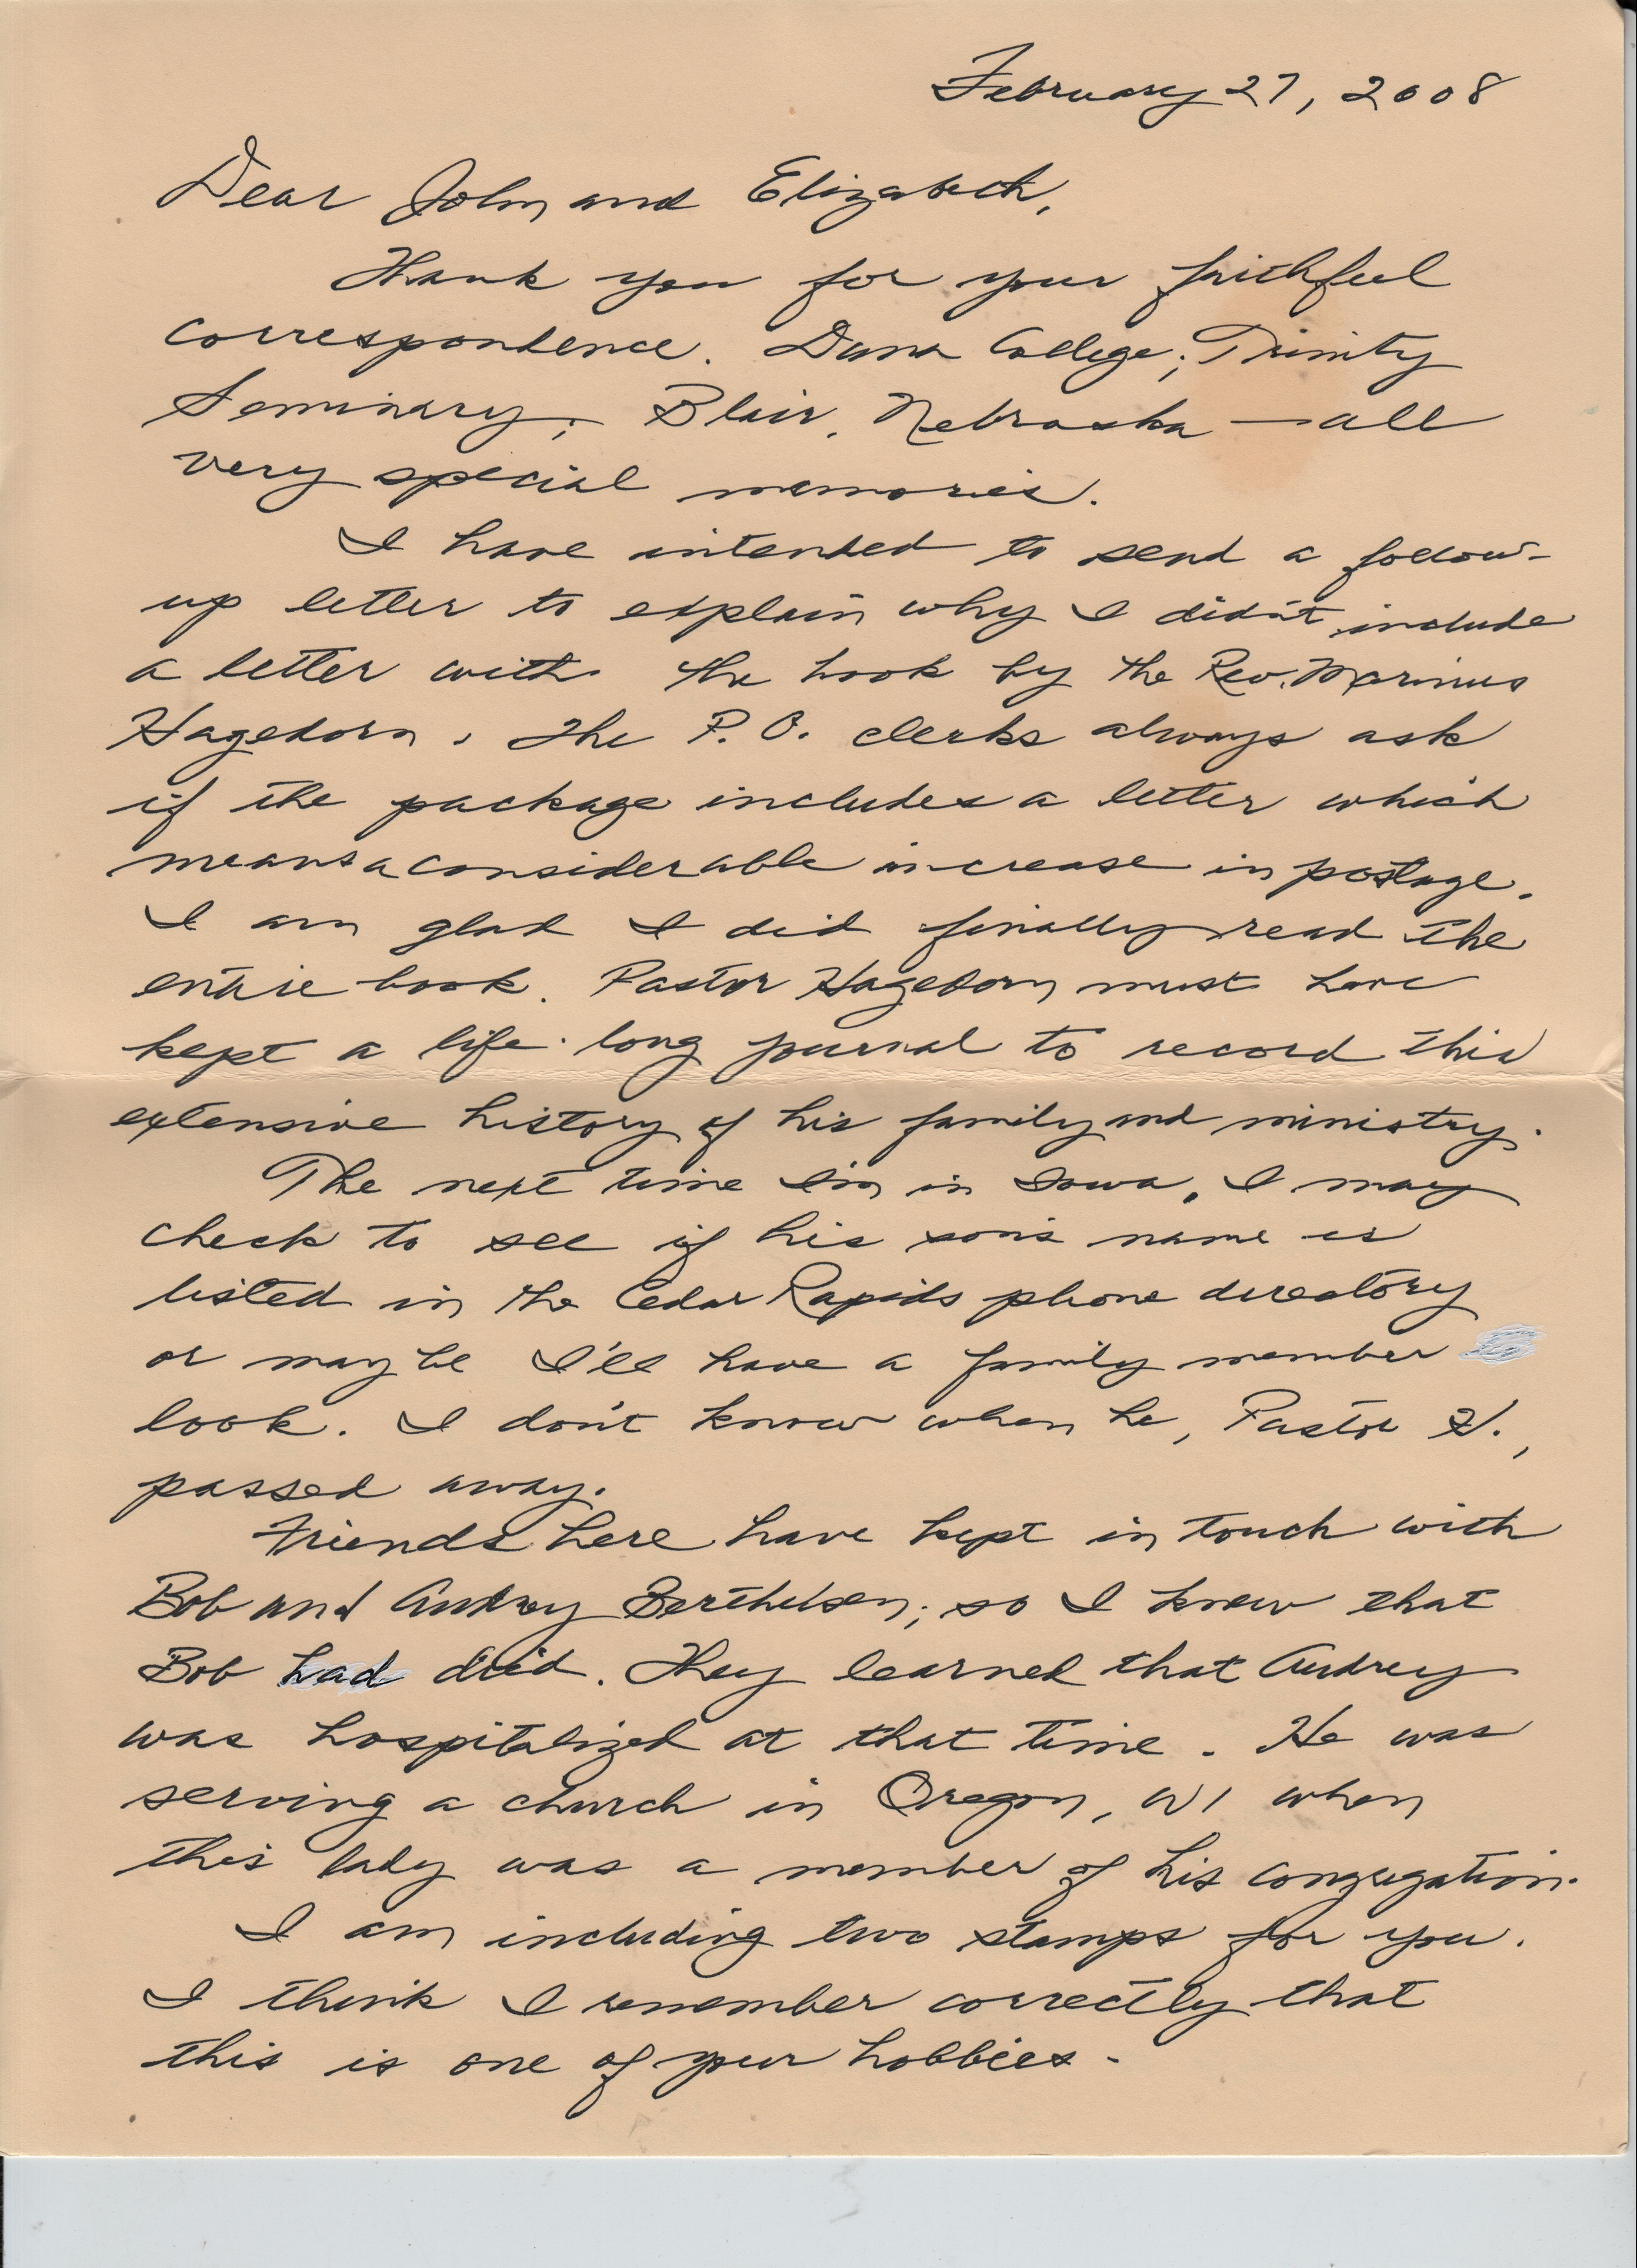 February 27, 2008
Dear John and Elizabeth,
Thank you for your faithful
correspondence. Dana College; Trinity
Seminary; Blair, Nebraska — all
very special memories.
I have intended to send a follow-
up letter to explain why I didn't include
a letter with the book by the Rev. Marinus
Hagedorn. The P. O. clerks always ask
if the package includes a letter which
means a considerable increase in postage.
I am glad I did finally read the
entire book. Pastor Hagedorn must have
kept a life-long journal to record this
extensive history of his family and ministry.
The next time I'm in Iowa, I may
check to see if his son's name is
listed in the Cedar Rapids phone directory
or maybe I'll have a family member
look. I don't know when he, Pastor H.,
passed away.
Friends here have kept in touch with
Bob and Audrey Berthelsen; so I knew that
Bob had died. They learned that Audrey
was hospitalized at that time. He was
serving a church in Oregon, WI when
this lady was a member of his congregation.
I am including two stamps for you.
I think I remember correctly that
this is one of your hobbies.